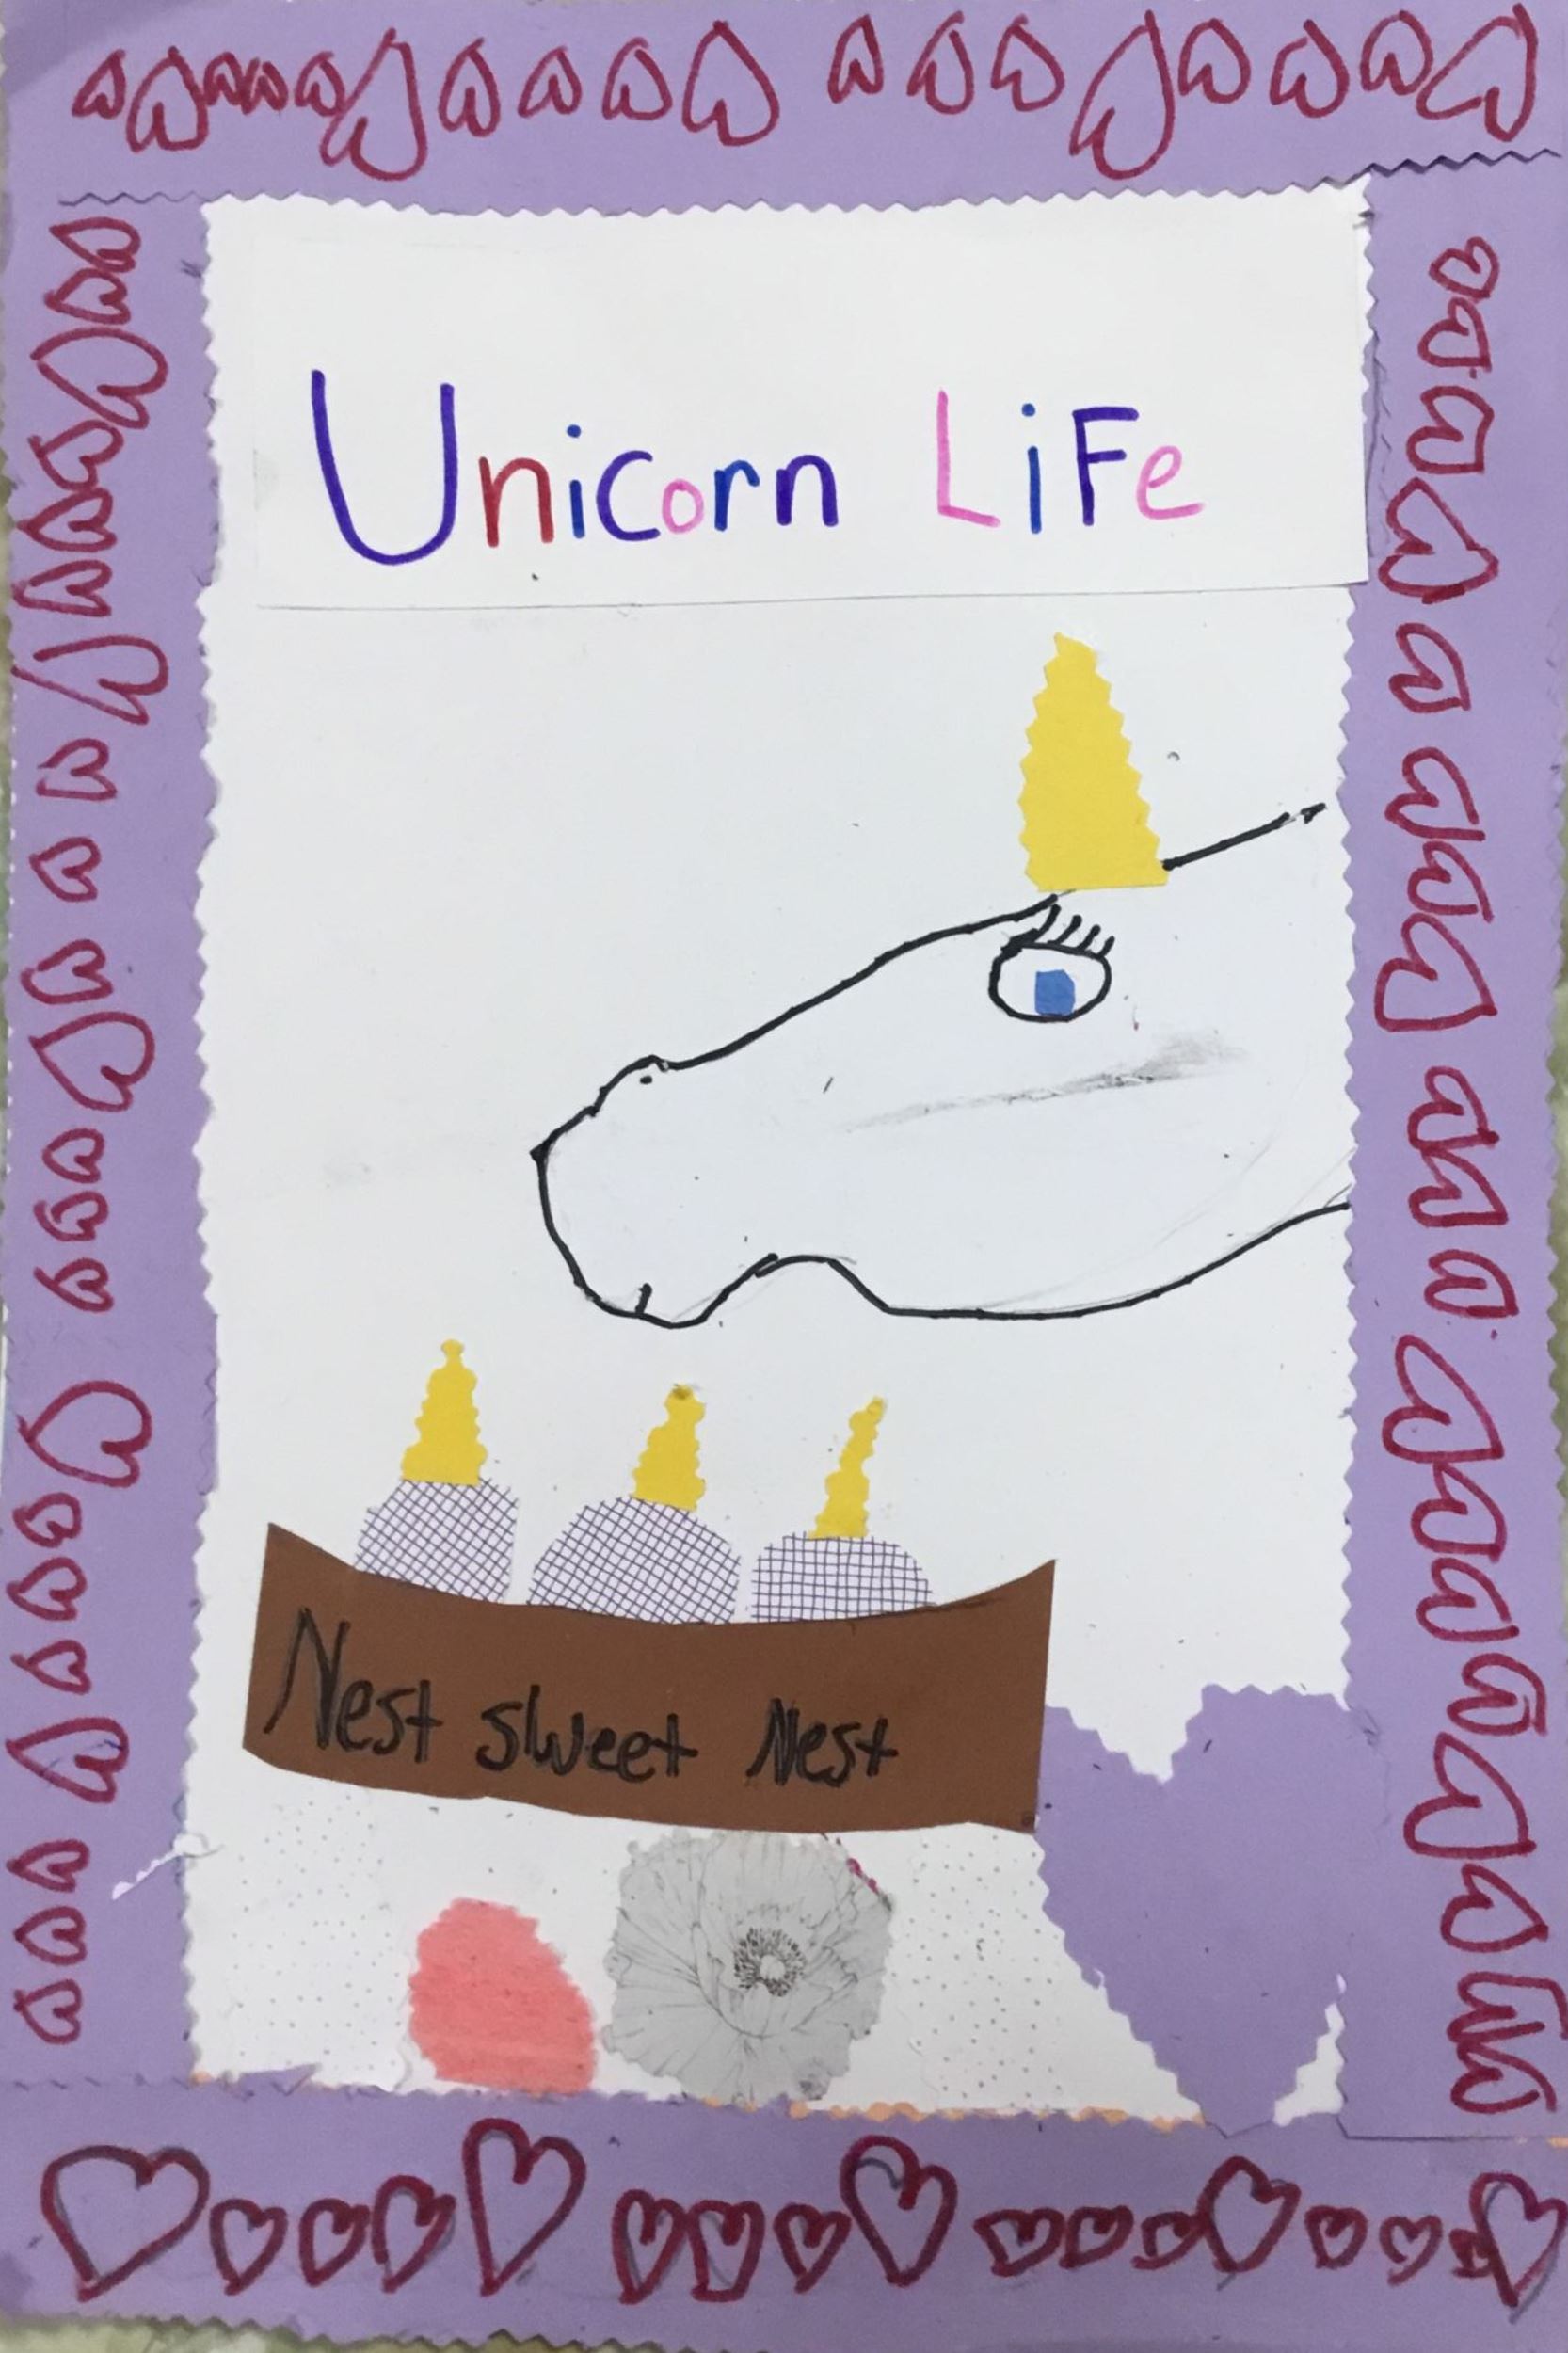 Unicorn LiFe
Nest sweet Nest